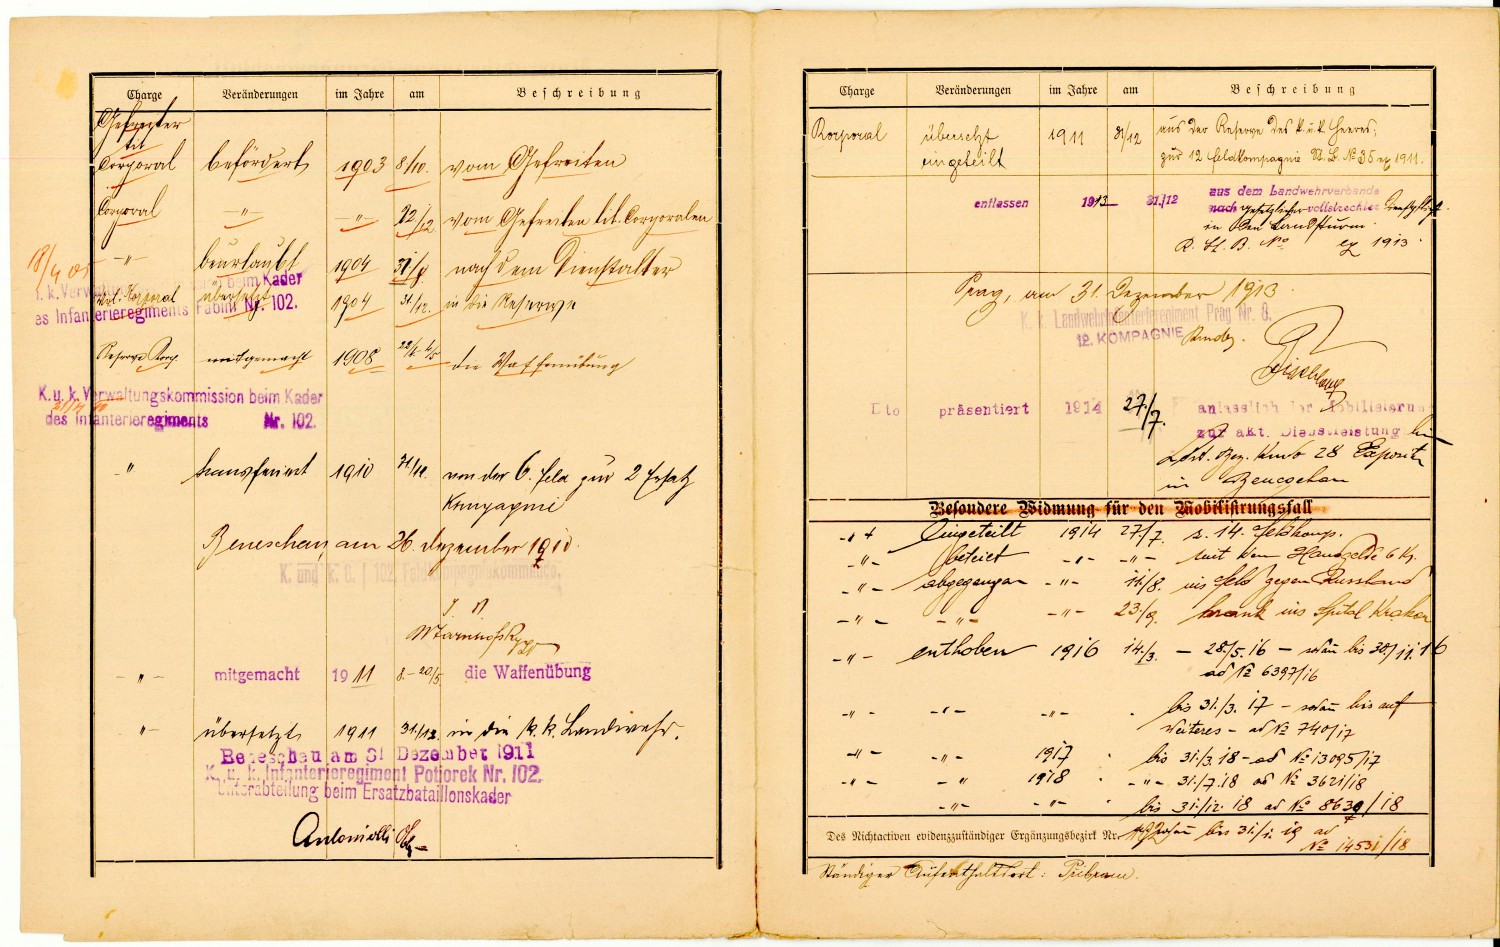 Charge Veränderungen im Jahre am Beschreibung
Gefreiter
tit.
Corporal befördert 1903 8/10. vom Gefreiten
Corporal -"- -"- 22/12 vom Gefreiten tit. Corporalen
-"- beurlaubt 1904 31/8 nach dem Dienstalter
18/4 05
beim Kader
Korporal übersetzt 1904 31/12. in die Reserve
es Infanterieregiments Nr. 102.
Reserve Korp. mitgemacht 1908 die Waffenübung
K. u. k. Verwaltungskommission beim Kader
des Infanterieregiments Nr. 102.
" transferirt 1910 von der 6. Feld zur 2 Ersatz
Kompagnie
Beneschau am 26. Dezember 1910.
K. und k. 102 Feldkompagniekommando.
-"- mitgemacht 1911 8.-20/5. die Waffenübung
-"- übersetzt 1911 31./12. in die k. k. Landwehr.
Beneschau am 31 Dezember 1911
K. u. k. Infanterieregiment Potiorek Nr. 102.
Unterabteilung beim Ersatzbataillonskader
Charge Veränderungen im Jahre am Beschreibung
Korporal übersetzt 1911 31/12 aus der Reserve des k. u. k. Heeres,
eingeteilt zur 12 Feldkompagnie No 35 ex 1911.
entlassen 1913 31./12 aus dem Landwehrverbande
nach gesetzlicher vollstreckter Dienstpflicht
in den Landsturm.
No ex 1913.
Prag, am 31. Dezember 1913.
K. k. Landwehrinfanterieregiment Prag Nr. 8.
12. KOMPAGNIE
Dto präsentiert 1914 27./7. anlasslich der Mobilisierung
zur akt. Dienstleistung
28
in Beneschau
Besondere Widmung für den Mobilisirungsfall
-"- Eingeteilt 1914 27./7. z. 14. Feldkomp.
-"- beteiet -"- -"- mit dem
-"- abgegangen -"- 11./8. ins Feld gegen Russland
-"- -"- -"- 23./9. krank ins Spital Krakau
-"- enthoben 1916 14./3. - 28./5. 16 - sodann bis 30./11. 16
ad No 6397/16
-"- -"- -"- bis 31./3. 17 - sodann bis auf
weiteres - ad No 740/17
-"- 1917 bis 31./3. 18 - ad No 13095/17
-"- -"- 1918 -"- 31./7. 18 ad No 3621/18
-"- -"- bis 31./12. 18 ad No 8630/18
Des Nichtactiven evidenzzuständiger Ergänzungsbezirk Nr. bis 31./1. 19 ad
No 14531/18
Ständiger Aufenthaltsort: Pribram.